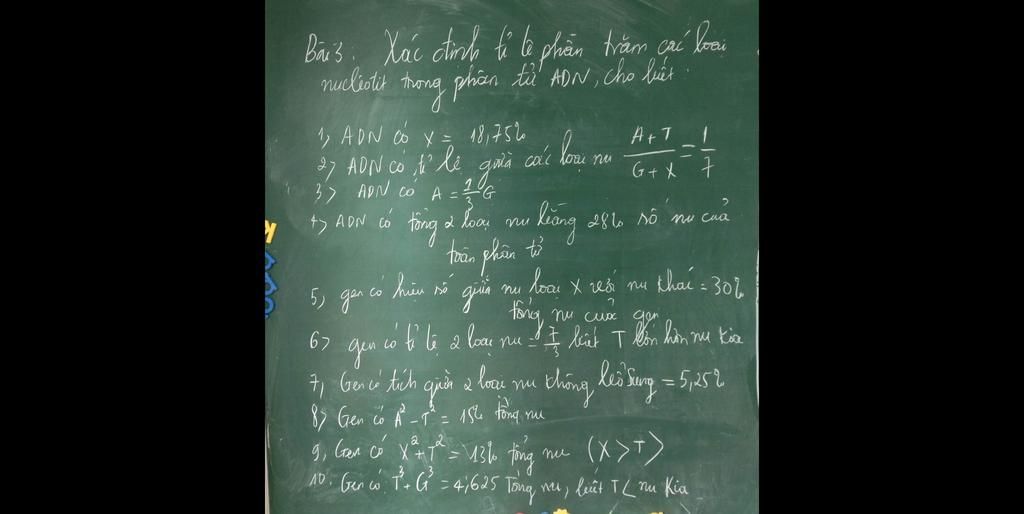 Bài 3: Xác định tỉ lệ phần trăm các loại
nuclêotit trong phân tử ADN, cho biết:
1, ADN có X = 18,75%
2, ADN có tỉ lệ giữa các loại nu A+T/G+X = 1/7
3, ADN có A = 1/3 G
4, ADN có tổng 2 loại nu bằng 28% số nu của
toàn phân tử
5, gen có hiệu số giữa nu loại X với nu khác = 30%
tổng nu của gen
6, gen có tỉ lệ 2 loại nu = 7/3 biết T lớn hơn nu kia
7, Gen có tích giữa 2 loại nu không bổ sung = 5,25%
8, Gen có A² - T² = 15% tổng nu
9, Gen có X² + T² = 13% tổng nu (X > T)
10. Gen có T³ + G³ = 4,625 Tổng nu, biết T < nu kia